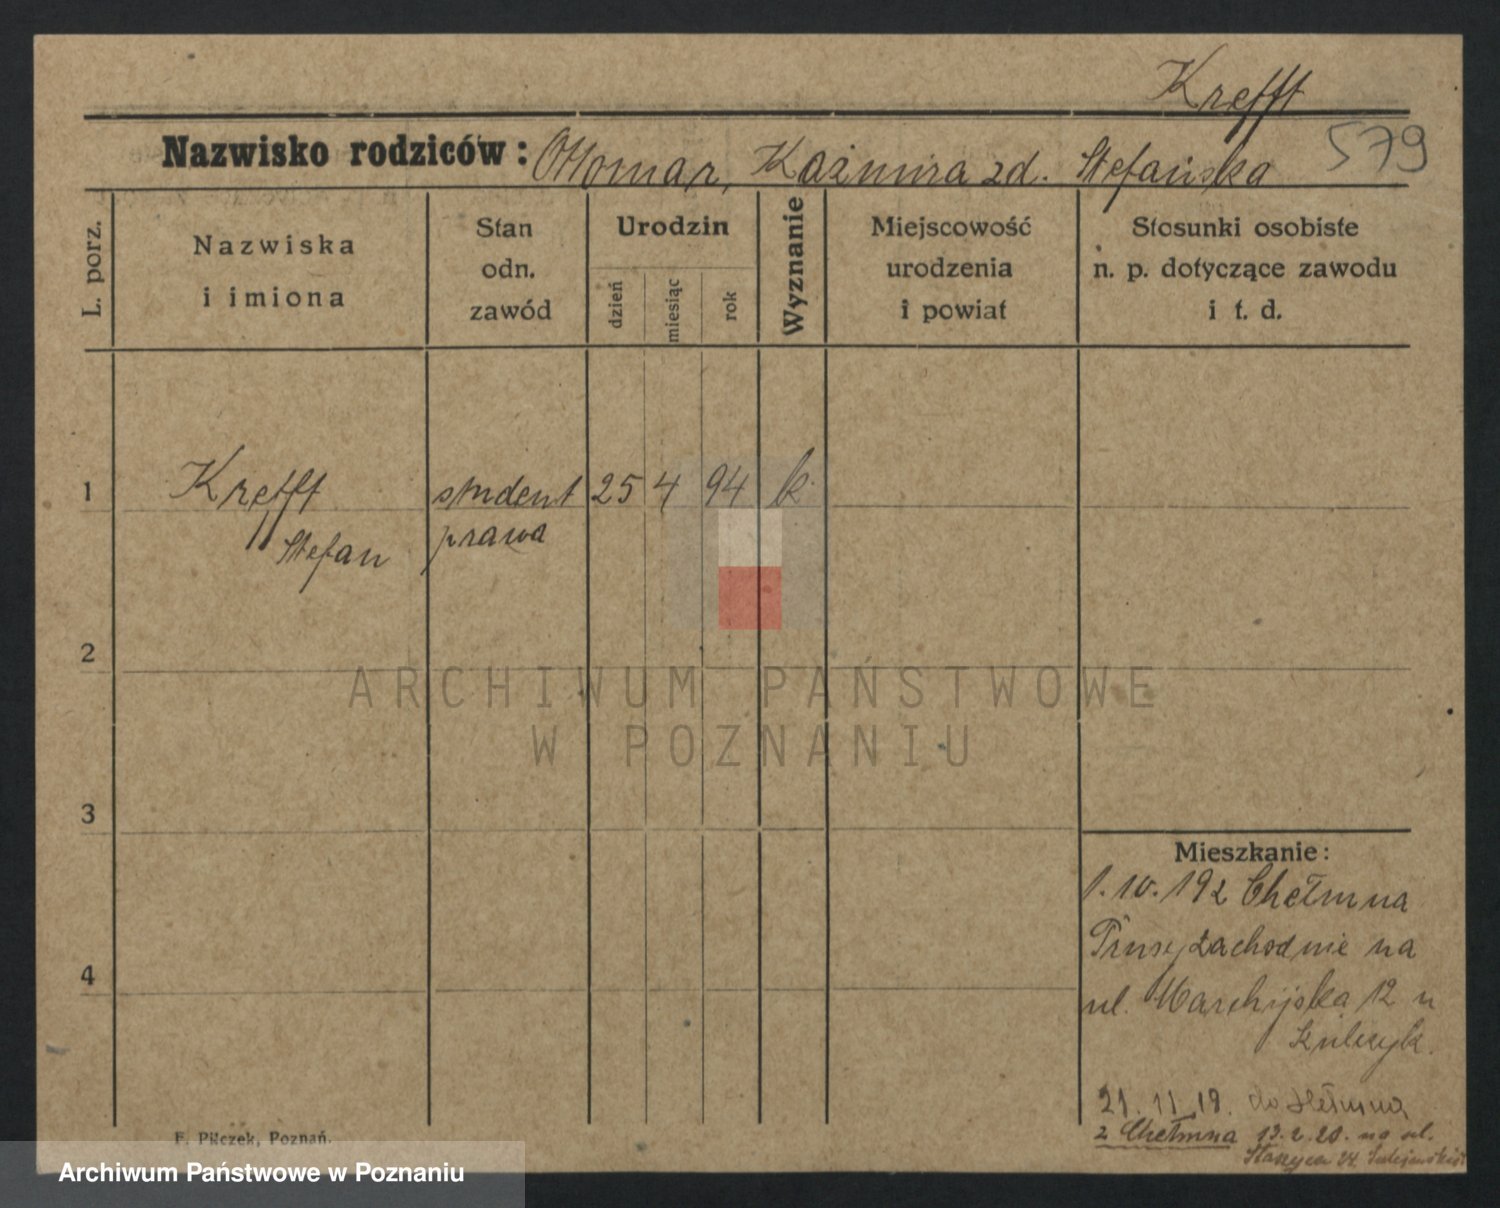 Krefft
579
Nazwisko rodziców: Ottomar, Kaźmira zd. Stefańska
L. porz.
Nazwiska
i imiona
Stan
odn.
zawód
Urodzin
dzień
miesiąc
rok
Wyznanie
Miejscowość
urodzenia
i powiat
Stosunki osobiste
n. p. dotyczące zawodu
i t. d.
1
Krefft
Stefan
student
prawa
25 4 94 k.
2
ARCHIWUM PAŃSTWOWE
W POZNANIU
3
4
Mieszkanie:
1. 10. 192 Chełmna
zachodnie na
ul. 12 u
21. 11 19. do Hełmna
z Chełmna 13. 2. 20. na ul.
F. Pilczek, Poznań.
Archiwum Państwowe w Poznaniu